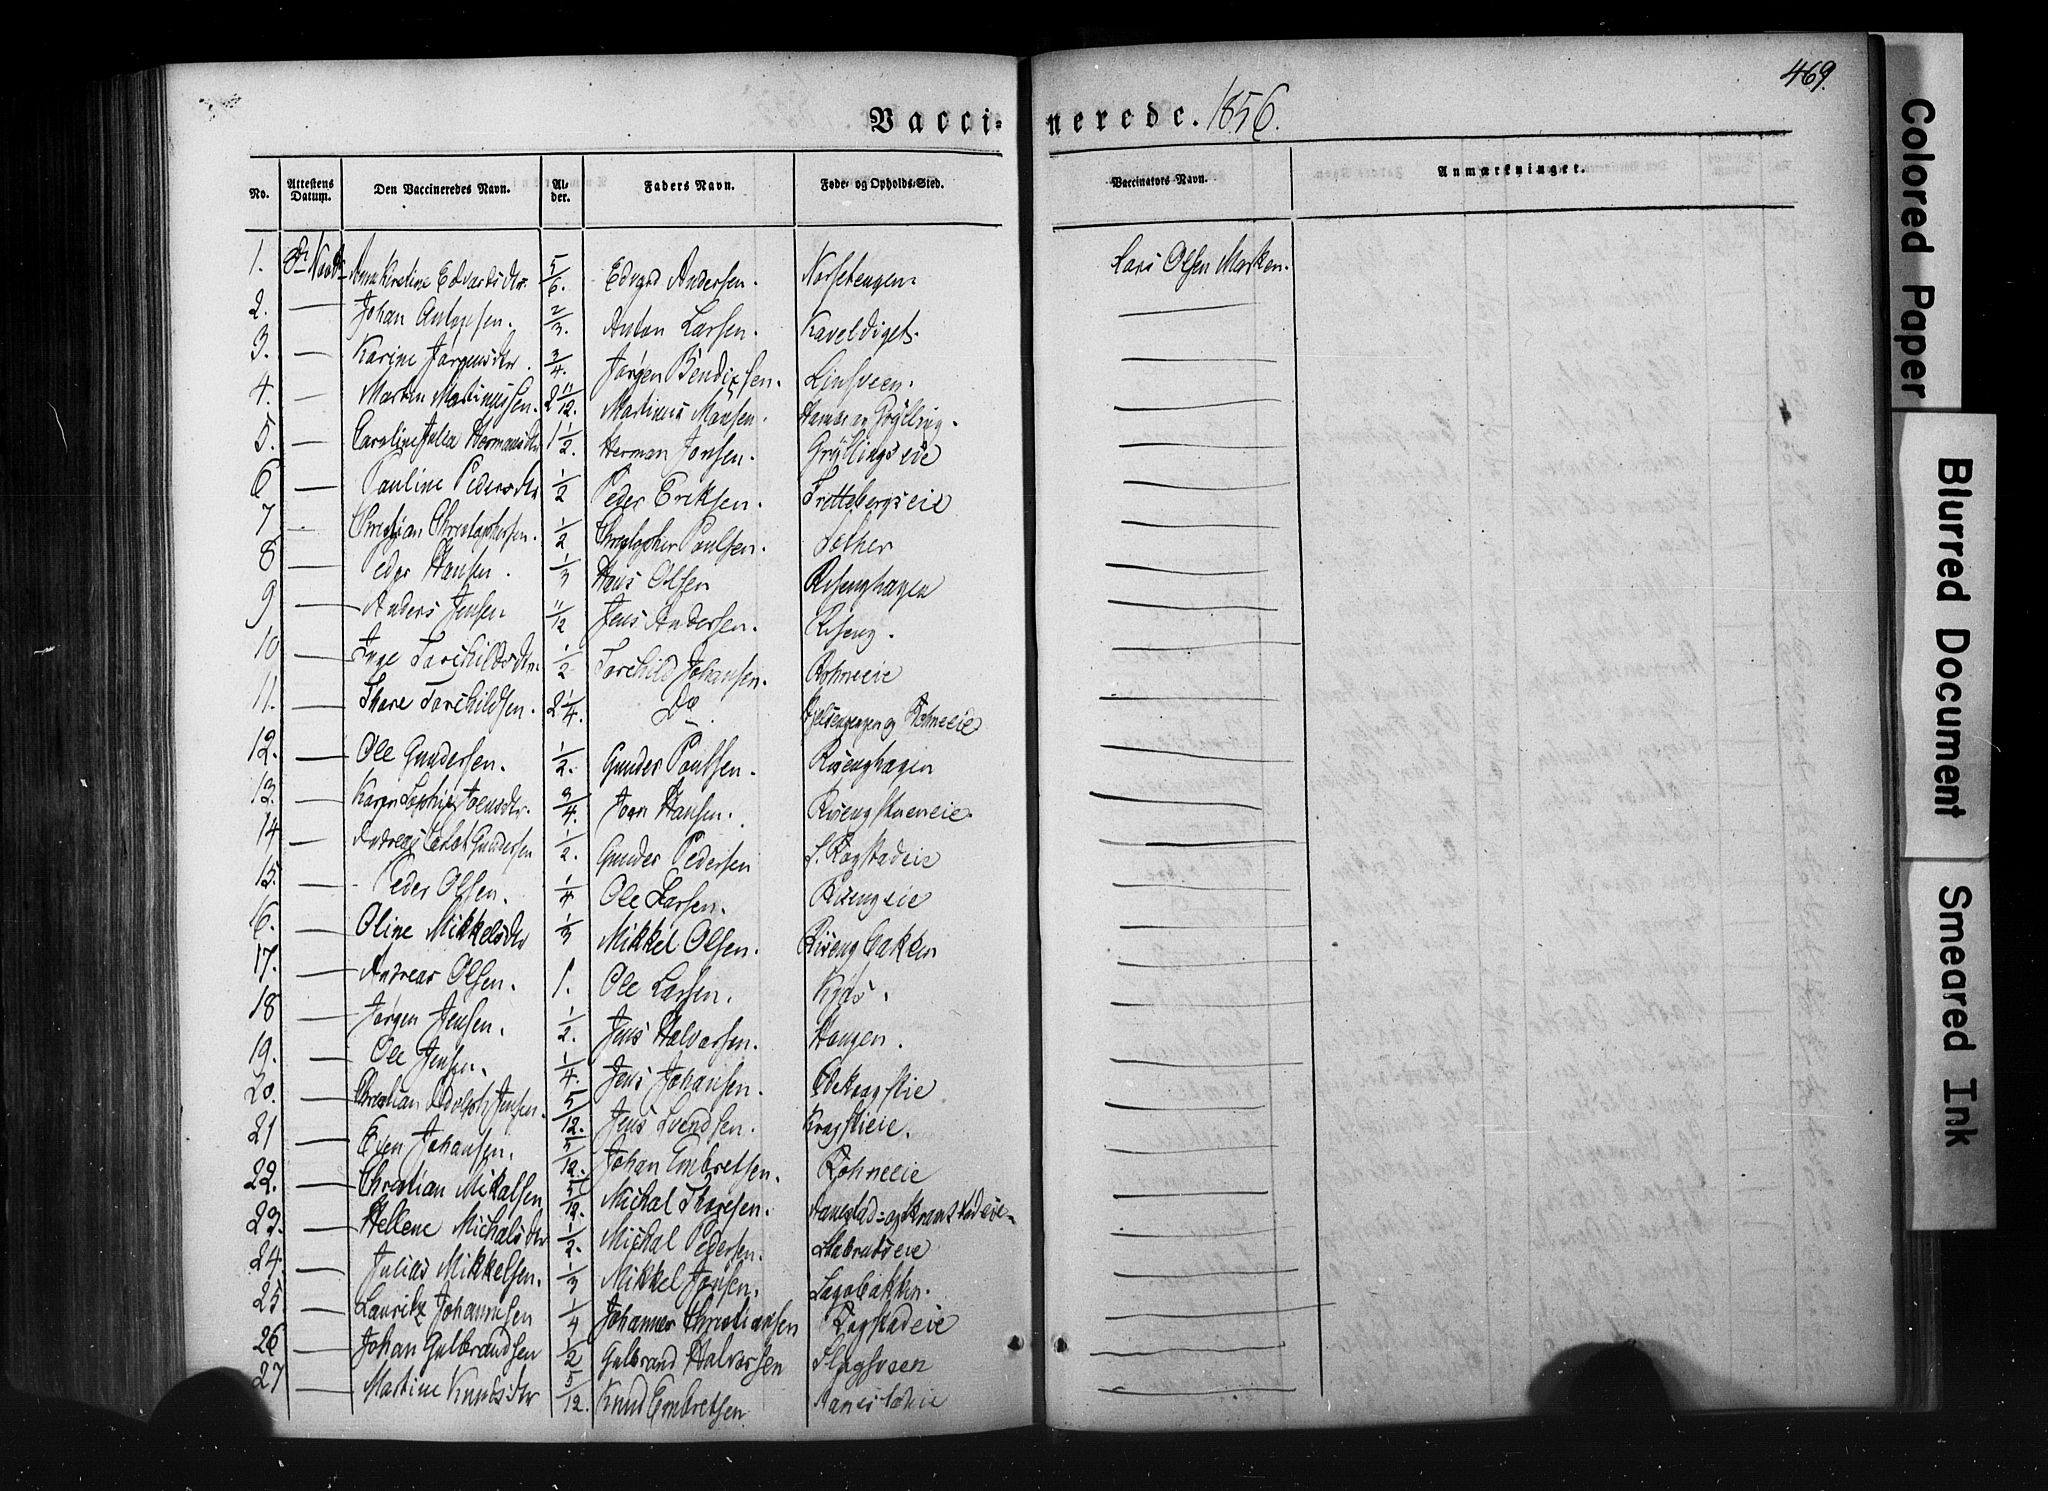 469.
Vaccinerede. 1856.
No. Attestens Datum. Den Vaccineredes Navn. Alder. Faders Navn. Føde- og Opholds-Sted. Vaccinators Navn. Anmærkninger.
1. Anne Kirstine Edvardsdtr. 5/6. Edvard Andersen. Norsetengen. Lars Olsen Marken.
2. — Johan Antonsen. 2/3. Anton Larsen. Kaveldiget. —
3. — Karine Jørgensdtr. 3/4. Jørgen Bendixsen. —
4. — Martin Martinussen. 2 11/12. Martinus Hansen. —
5. — Caroline Julia Hermansdtr 1 1/2. Herman Jonsen. Gryllingseie —
6 — Pauline Pedersdtr 1/2 Peder Eriksen. —
7 — Christian Christophersen. 1/2 Christopher Paulsen. —
8 — Peder Hansen. 1/3 Hans Olsen Risenghagen —
9 — Anders Jensen. 11/12 Jens Andersen. Riseng. —
10 — Inge Torchildsdtr. 1/2 Torchild Johansen. Rohneeie —
11. — Thore Torchildsen. 2 1/4. Do og Rohneeie —
12. — Ole Gundersen. 1/2. Gunder Paulsen. Risenghagen —
13. — Karen Sophie Joensdtr. 3/4. Joen Hansen. —
14 — Andreas Gundersen 1/2. Gunder Pedersen S. Rogstadeie —
15. — Peder Olsen. 1/4 Ole Larsen. Risengeie —
16. — Oline Mikkelsdtr 1/3 Mikkel Olsen. Risengbakken —
17. — Andreas Olsen. 1. Ole Larsen. Kjos. —
18 — Jørgen Jensen. 1/2. Jens Halvorsen. Haugen. —
19. — Ole Jensen. 1/4. Jens Johansen. —
20. — Christian Adolph Jensen. 5/12. Jens Svendsen. —
21 — Even Johansen. 5/12. Johan Embretsen. Rohneeie —
22. — Christian Mikalsen 5/12. Michal Thoresen. —
23. — Hellene Michalsdtr 1/2. Michal Pedersen. Stabrudseie —
24. — Julias Mikkelsen. 1/3 Mikkel Jonsen. Sagabakken. —
25 — Lauritz Johannesen 1/4 Johannes Christiansen Rogstadeie —
26 — Johan Gulbrandsen 1/2 Gulbrand Halvorsen —
27 — Martine Knudsdtr 5/12. Knud Embretsen —
Colored Paper
Blurred Document
Smeared Ink